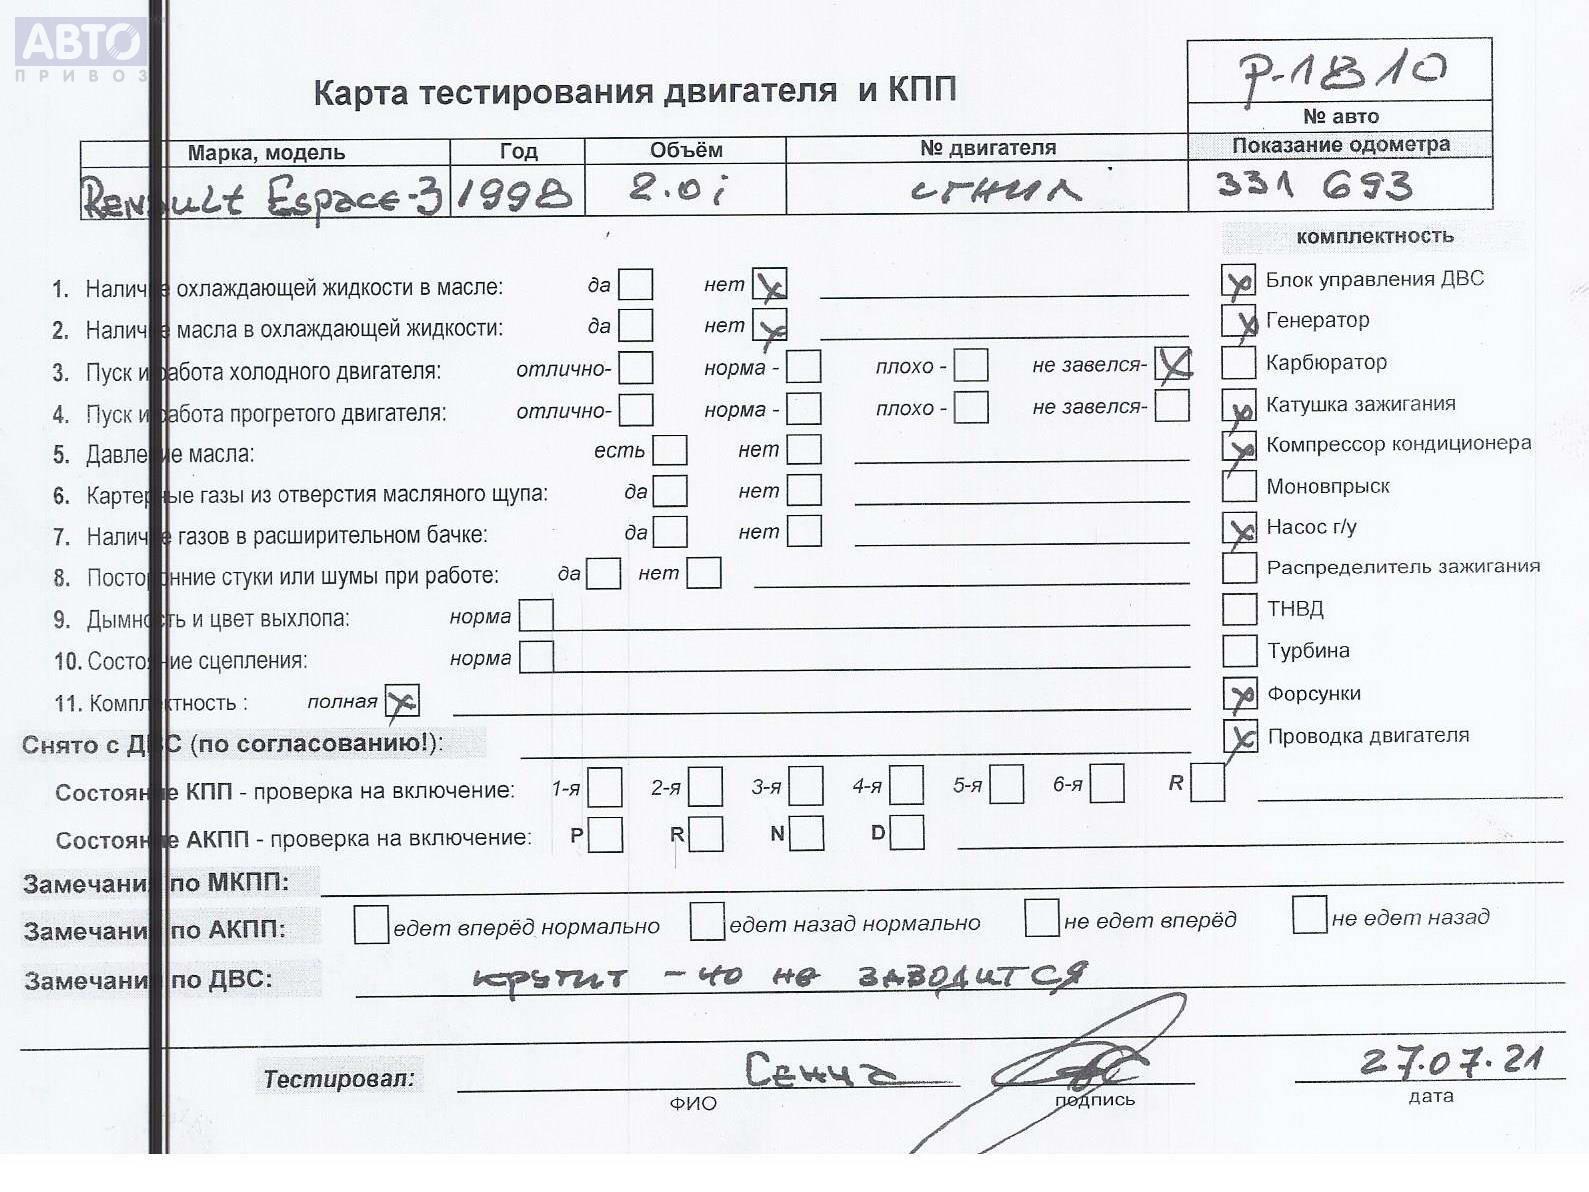 АВТО
ПРИВОЗ
Р-1810
Карта тестирования двигателя и КПП
№ авто
Марка, модель Год Объём № двигателя Показание одометра
Renault Espace-3 1998 2.0i сгнил 331 693
комплектность
1. Наличие охлаждающей жидкости в масле: да нет x
Блок управления ДВС x
2. Наличие масла в охлаждающей жидкости: да нет x
Генератор x
3. Пуск и работа холодного двигателя: отлично- норма - плохо - не завелся- x
Карбюратор
4. Пуск и работа прогретого двигателя: отлично- норма - плохо - не завелся-
Катушка зажигания x
5. Давление масла: есть нет
Компрессор кондиционера x
6. Картерные газы из отверстия масляного щупа: да нет
Моновпрыск
7. Наличие газов в расширительном бачке: да нет
Насос г/у x
8. Посторонние стуки или шумы при работе: да нет
Распределитель зажигания
9. Дымность и цвет выхлопа: норма
ТНВД
10. Состояние сцепления: норма
Турбина
11. Комплектность : полная x
Форсунки x
Снято с ДВС (по согласованию!):
Проводка двигателя x
Состояние КПП - проверка на включение: 1-я 2-я 3-я 4-я 5-я 6-я R
Состояние АКПП - проверка на включение: P R N D
Замечания по МКПП:
Замечания по АКПП: едет вперёд нормально едет назад нормально не едет вперёд не едет назад
Замечания по ДВС: крутит - но не заводится
Тестировал: 27.07.21
ФИО подпись дата